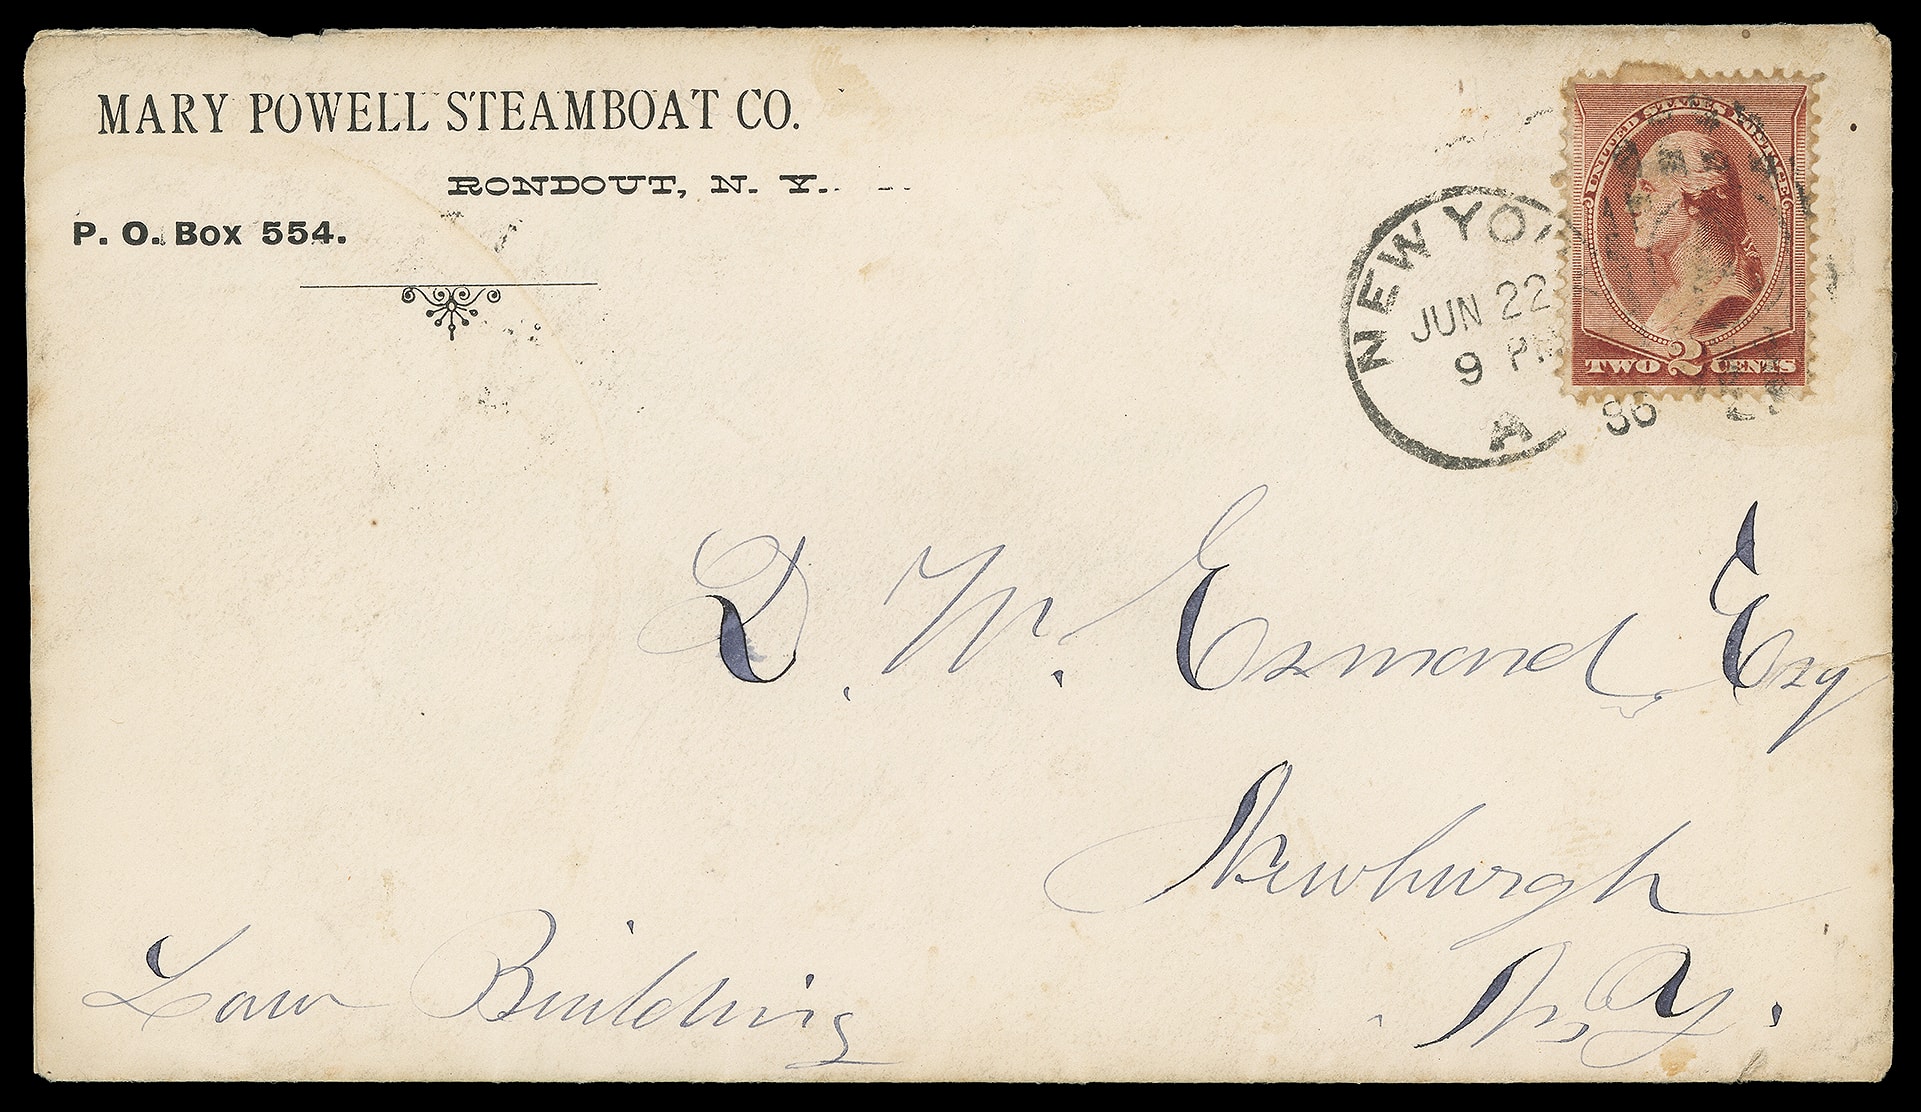 MARY POWELL STEAMBOAT CO.
RONDOUT, N. Y.
P. O. Box 554.
UNITED STATES POSTAGE
TWO 2 CENTS
NEW YO
JUN 22
9 PM
86
A
D. W. Esmond, Esq
Newburgh
N. Y.
Law Building